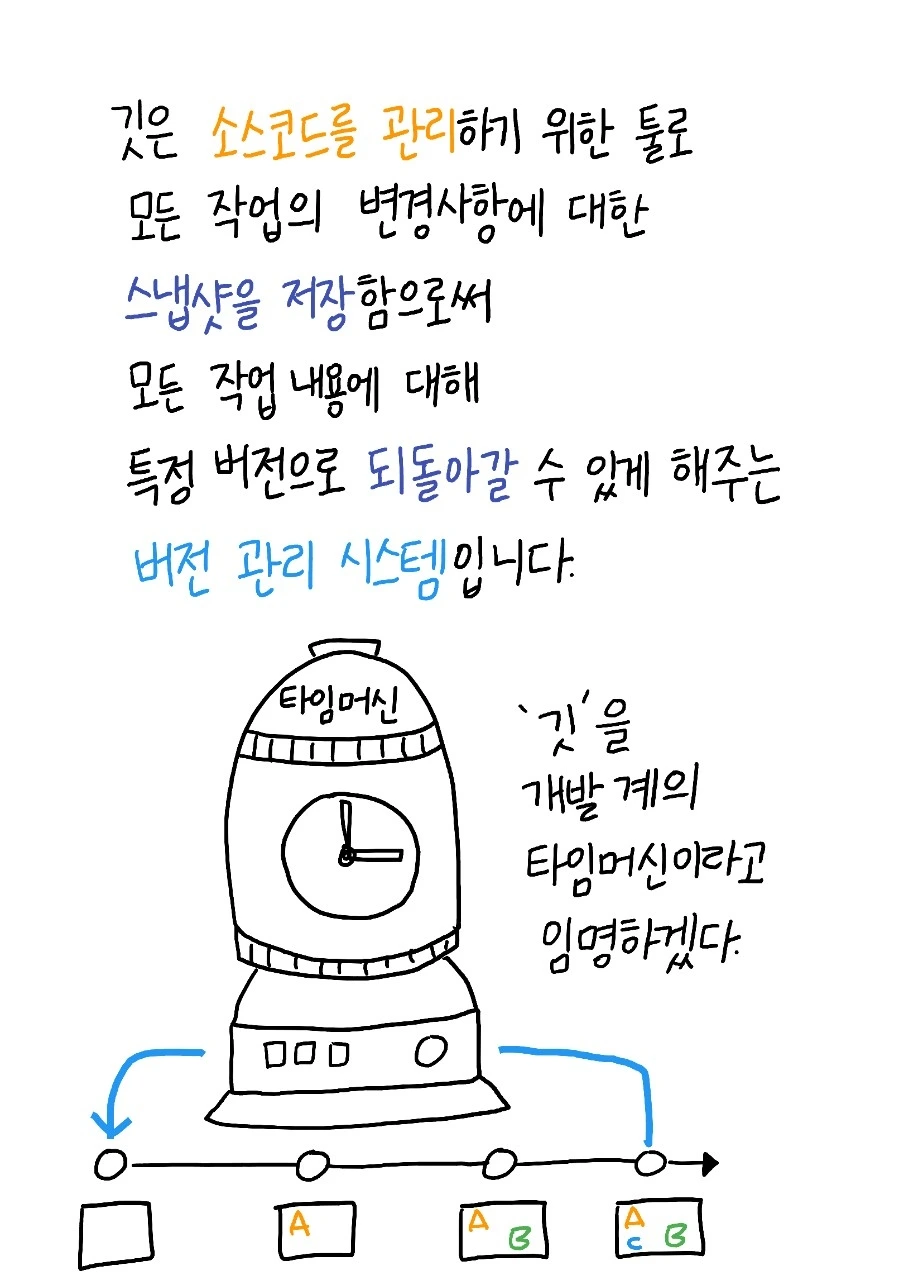 깃은 소스코드를 관리하기 위한 툴로
모든 작업의 변경사항에 대한
스냅샷을 저장함으로써
모든 작업 내용에 대해
특정 버전으로 되돌아갈 수 있게 해주는
버전 관리 시스템입니다.
타임머신
'깃'을
개발 계의
타임머신이라고
임명하겠다.
A
A B
A
C B